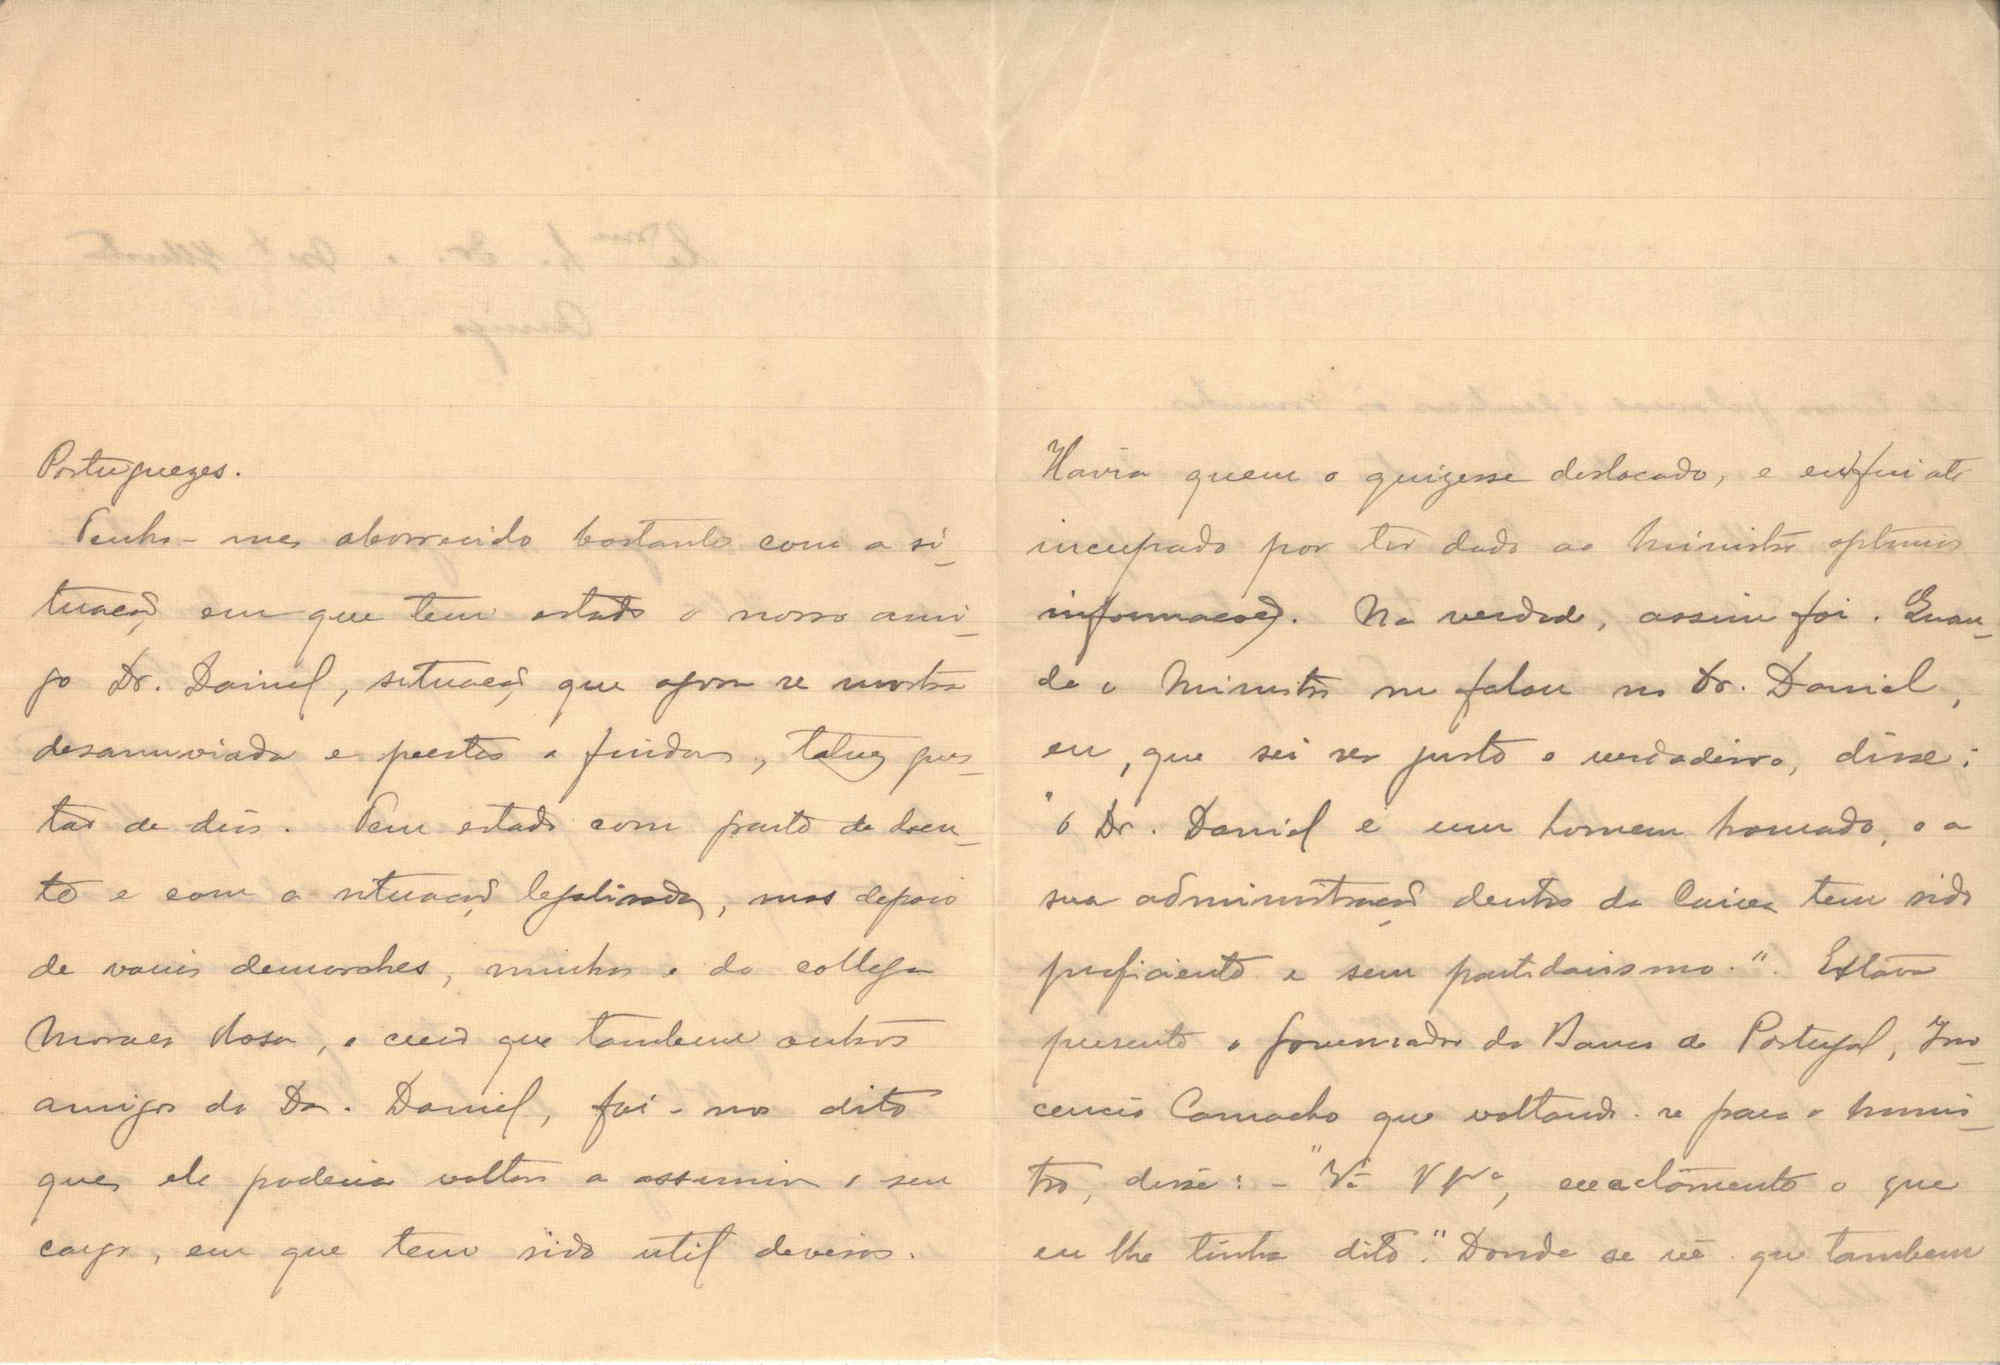 Portuguezes.
Tenho-me aborrecido bastante com a si-
tuação em que tem estado o nosso ami-
go Dr. Daniel, situação que agora se mostra
desanuviada e prestes a findar, talvez gos-
tar de deis. Tem estado com parte de doen-
te e com a situação legalisada, mas depois
de varias demarches, minhas e do collega
Moraes Rosa, e creio que tambem outros
amigos do Dr. Daniel, foi-nos dito
que ele poderia voltar a assumir o seu
cargo, em que tem sido util deveras.
Havia quem o quizesse deslocado, e eu fui até
increpado por ter dado ao Ministro optimas
informações. Na verdade, assim foi. Quan-
do o Ministro me falou no Dr. Daniel,
eu, que sei ser justo e verdadeiro, disse:
"o Dr. Daniel é um homem honrado, e a
sua administração dentro da Caixa tem sido
proficiente e sem partidarismo.". Estava
presente o governador do Banco de Portugal, Ino-
cencio Camacho que voltando-se para o minis-
tro, disse: - "Vê V. Exª, exactamente o que
eu lhe tinha dito." Donde se vê que tambem